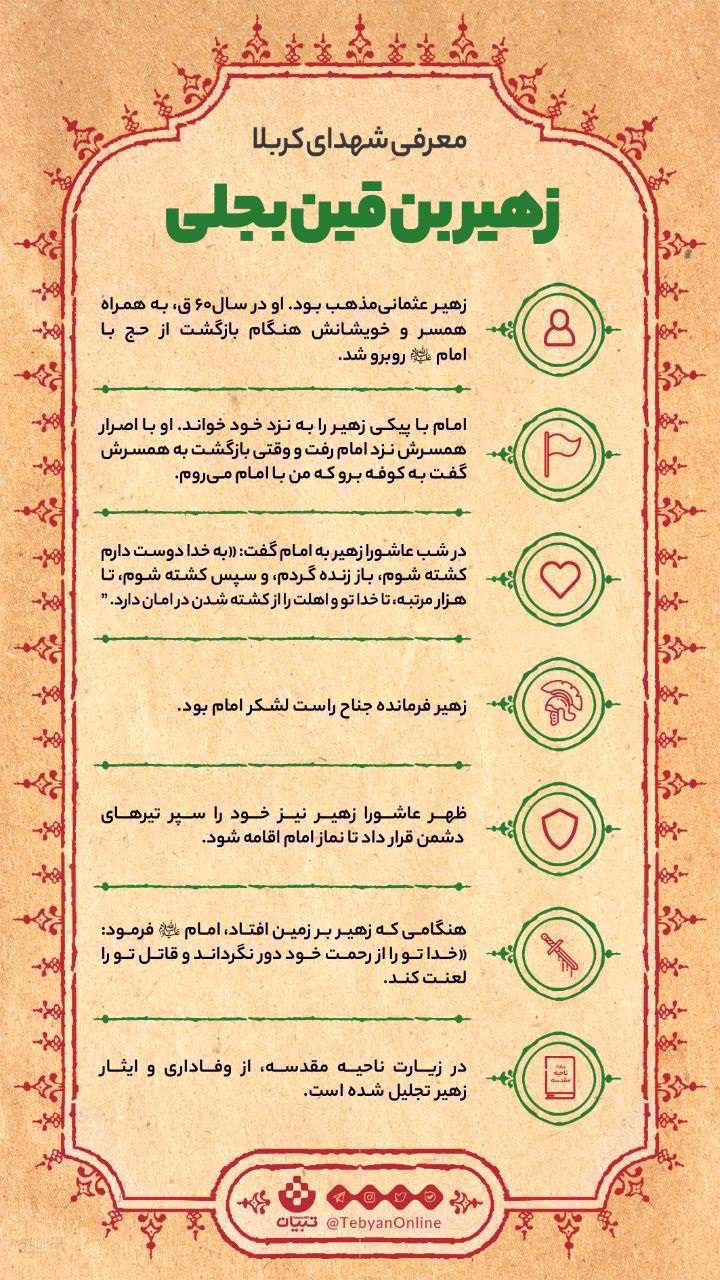 معرفی شهدای کربلا
زهیر بن قین بجلی
زهیر عثمانی‌مذهب بود. او در سال۶۰ ق، به همراه
همسر و خویشانش هنگام بازگشت از حج با
امام علیه‌السلام روبرو شد.
امام با پیکی زهیر را به نزد خود خواند. او با اصرار
همسرش نزد امام رفت و وقتی بازگشت به همسرش
گفت به کوفه برو که من با امام می‌روم.
در شب عاشورا زهیر به امام گفت: «به خدا دوست دارم
کشته شوم، باز زنده گردم، و سپس کشته شوم، تا
هزار مرتبه، تا خدا تو و اهلت را از کشته شدن در امان دارد.”
زهیر فرمانده جناح راست لشکر امام بود.
ظهر عاشورا زهیر نیز خود را سپر تیرهای
دشمن قرار داد تا نماز امام اقامه شود.
هنگامی که زهیر بر زمین افتاد، امام علیه‌السلام فرمود:
«خدا تو را از رحمت خود دور نگرداند و قاتل تو را
لعنت کند.
در زیارت ناحیه مقدسه، از وفاداری و ایثار
زهیر تجلیل شده است.
زیارت
ناحیه
مقدسه
تبیان
@TebyanOnline